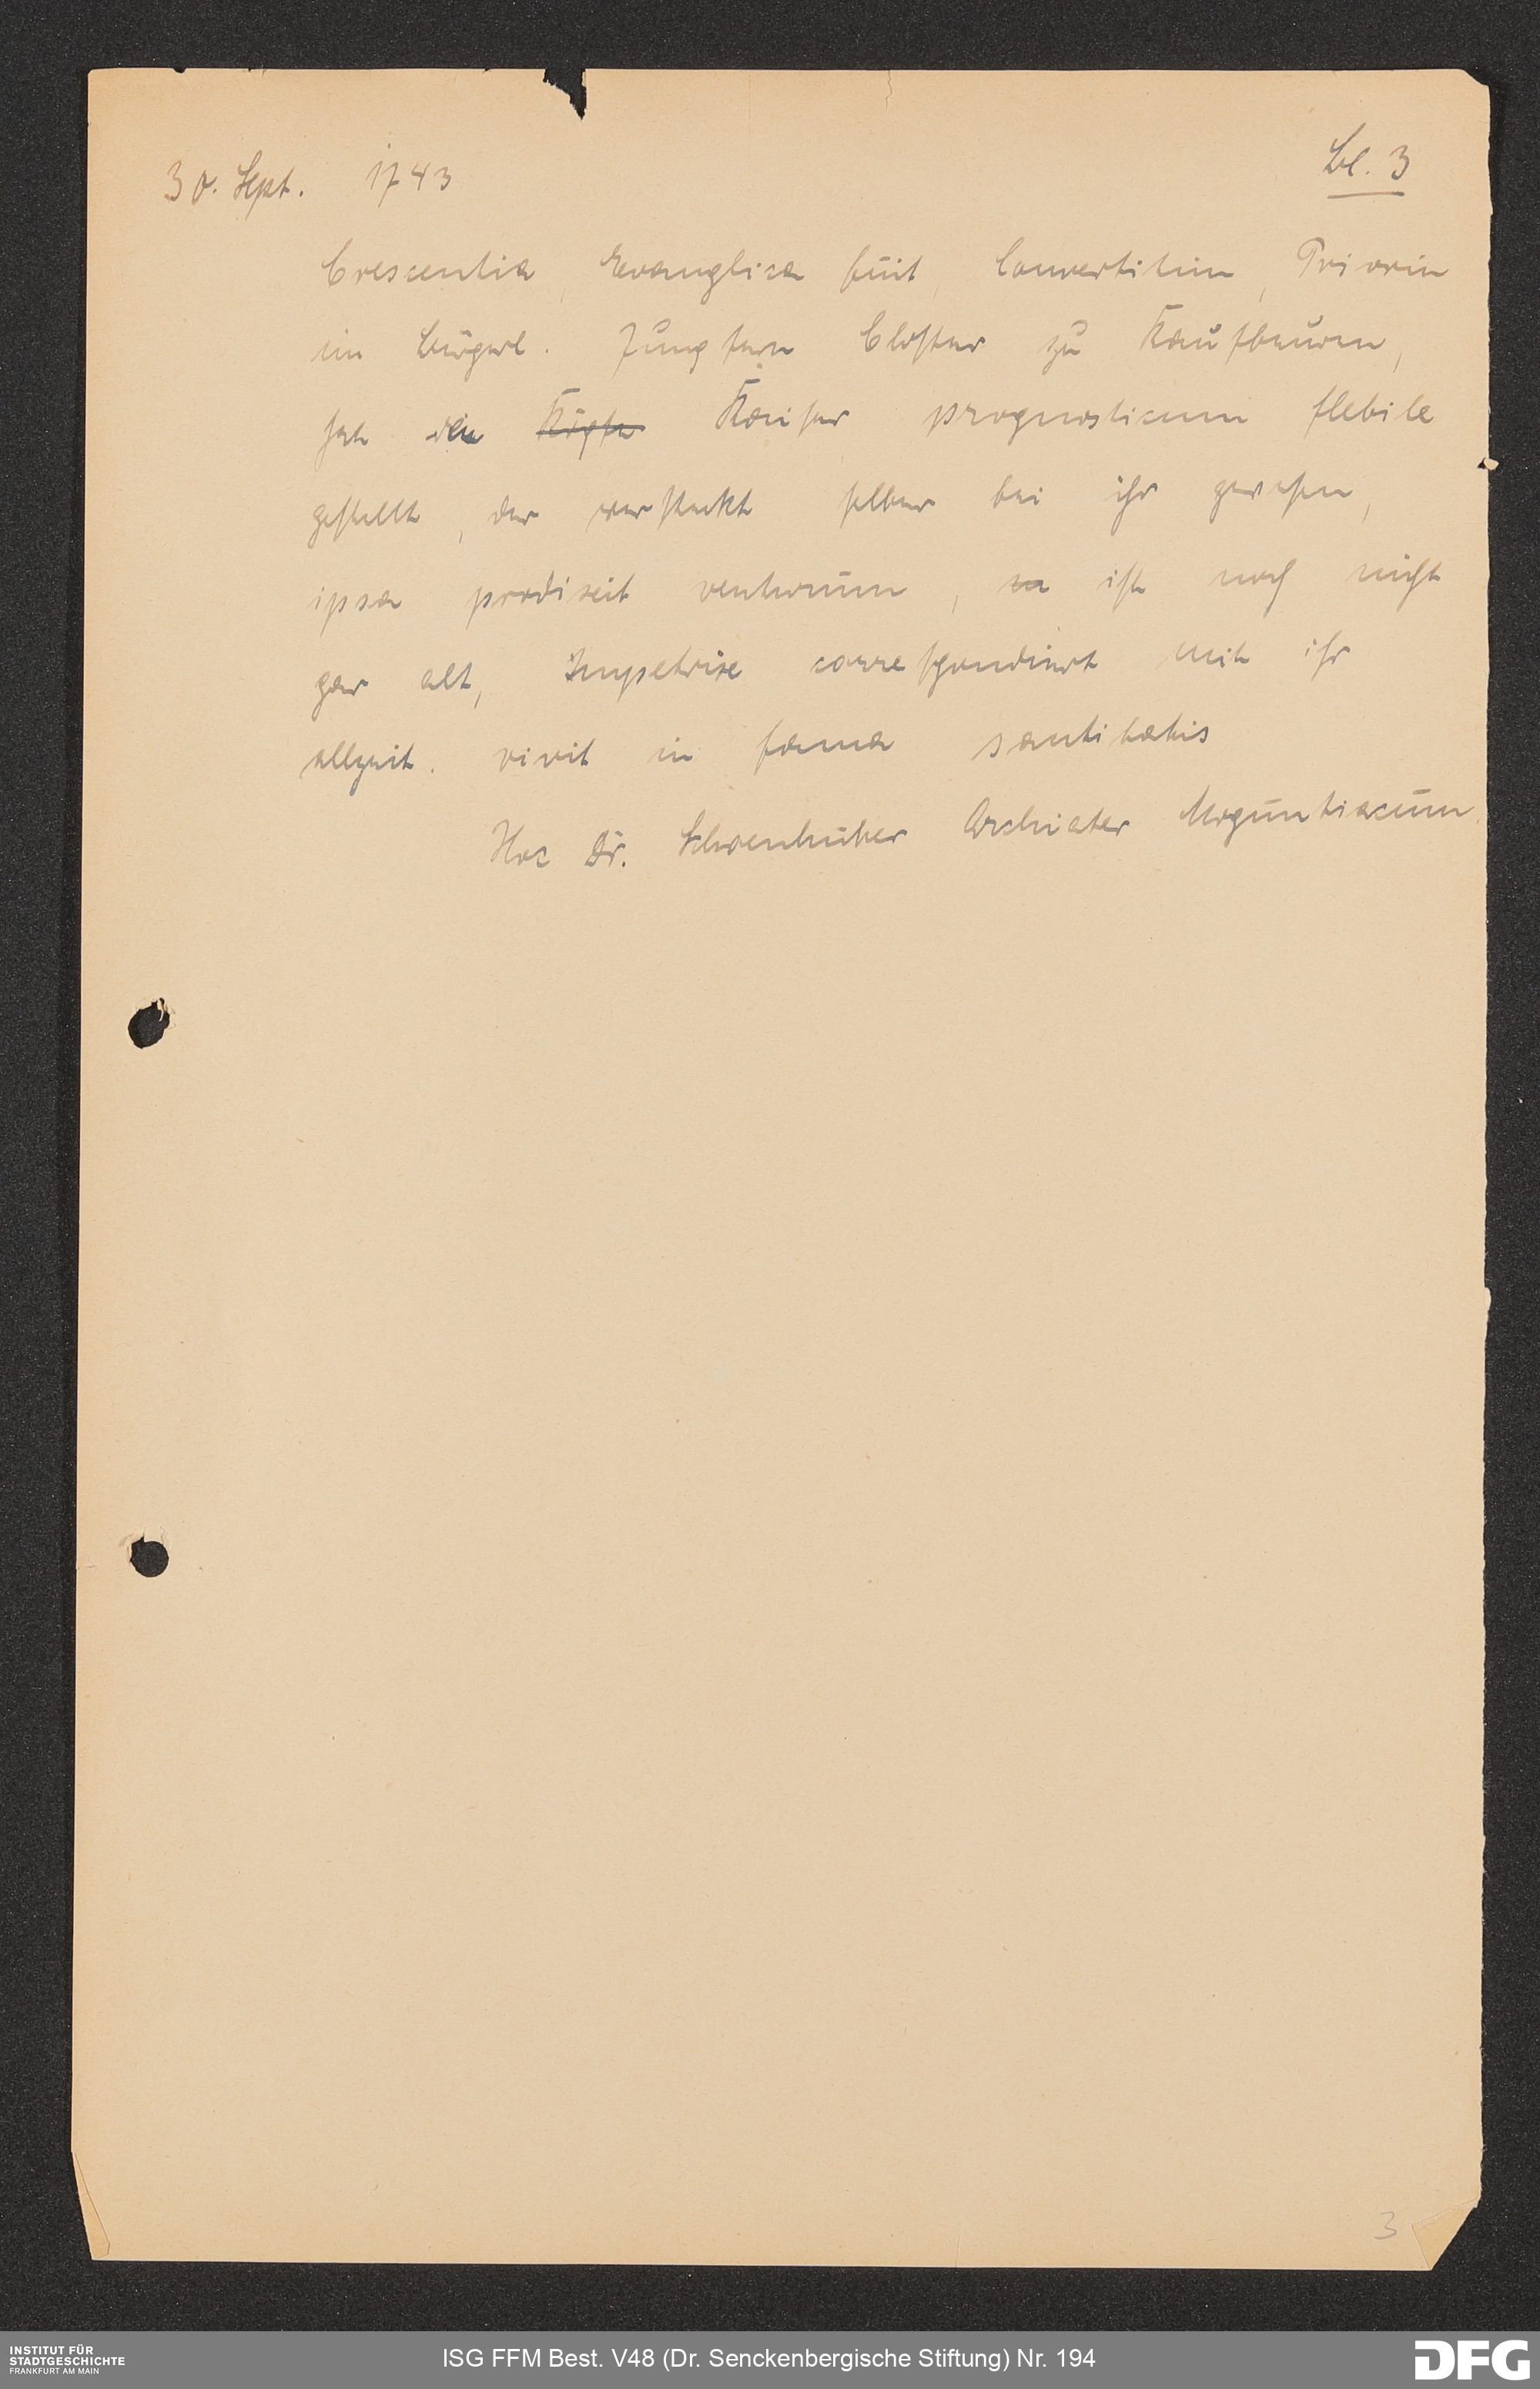 Bl. 3
30. Sept. 1743
Crescentia, Evanglica fuit, Convertitin, Priorin
im bürgerl. Jungfern Closter zu Kaufbeuren,
hat den Kaiser prognosticum flebile
gestellt, der versteckt selber bei ihr gewesen,
ipsa prodixit venturum, ist noch nicht
gar alt, Impetrix correspondiert mit ihr
allzeit. vivit in fama santitatis
Hoc Dr. Schoenhuber Archiater Moguntiacum.
3
INSTITUT FÜR
STADTGESCHICHTE
FRANKFURT AM MAIN
ISG FFM Best. V48 (Dr. Senckenbergische Stiftung) Nr. 194
DFG